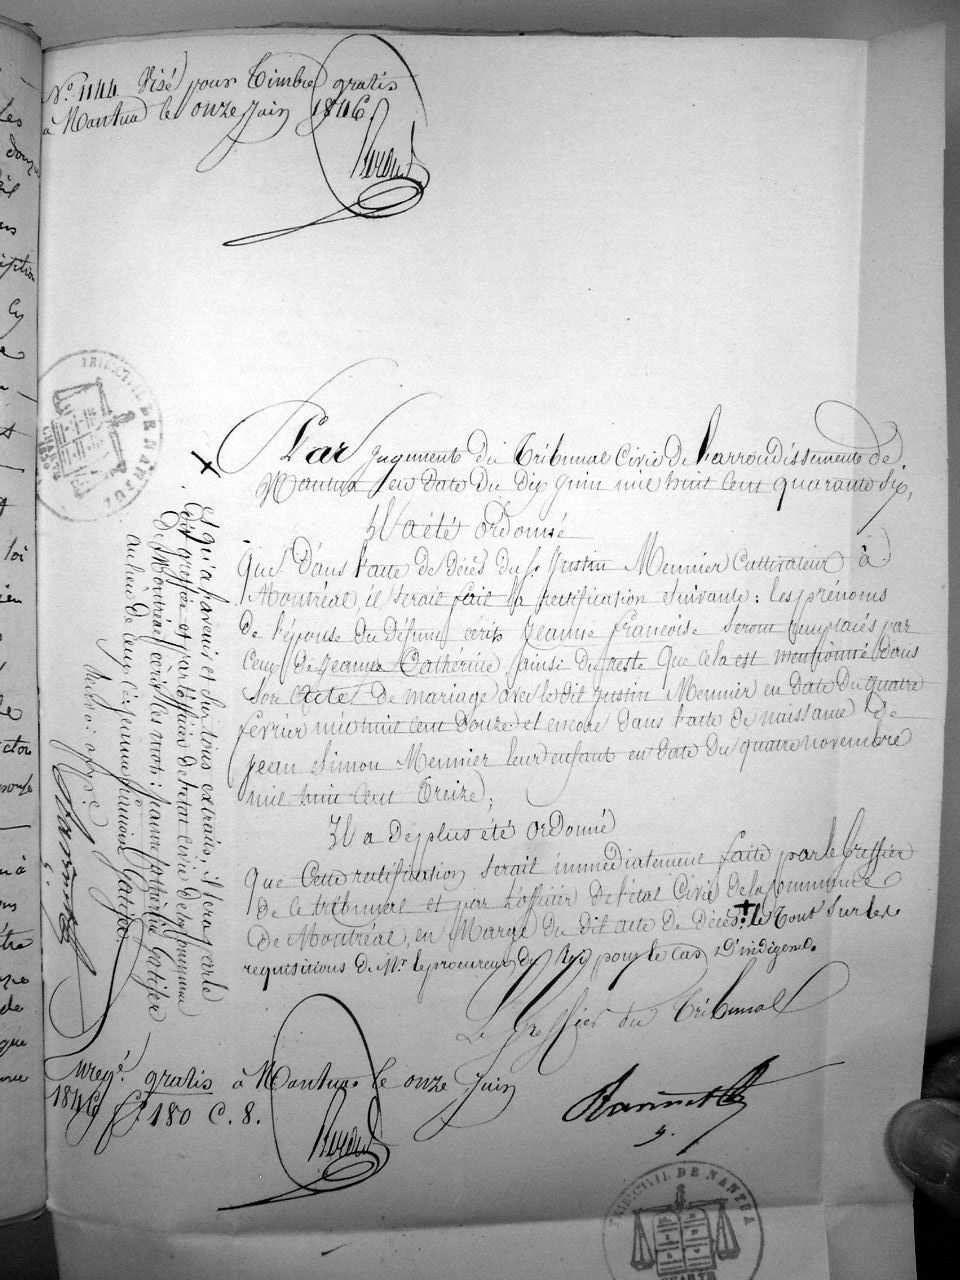 N.° 1144 Visé pour timbre gratis
à Nantua le onze Juin 1846.
TRIB. CIVIL DE NANTUA
CHARTE
1830
Par Jugement du Tribunal Civil de L'arrondissement de
Nantua en date du dix Juin mil huit cent quarante six,
Il a été ordonné
que dans l'acte de décès du Sr Justin Meunier Cultivateur à
Montréal, il serait fait la rectification suivante : les prénoms
de l'épouse du défunt écrits Jeanne françoise seront remplacés par
ceux de Jeanne Cathérine ainsi du reste que cela est mentionné dans
son acte de mariage avec le dit Justin Meunier en date du quatre
février mil huit cent douze et encore dans l'acte de naissance de
Jean Simon Meunier leur enfant en date du quatre novembre
mil huit cent treize ;
Il a de plus été ordonné
que cette rectification serait immédiatement faite par le Greffier
de ce tribunal et par l'officier de l'état Civil de la Commune
de Montréal, en Marge du dit acte de décès. + le tout sur les
requisitions de Mr le procureur du Roi pour le cas d'indigence.
Le Greffier du Tribunal
+ Et qu'à l'avenir et sur tous extraits, il sera par le
dit greffier et par l'officier de l'état Civil de la Commune
de Montréal, écrit les mots : Jeanne Cathérine
au lieu de ceux-ci : Jeanne françoise
Renvoi approuvé
Enregé. gratis à Nantua le onze Juin
1846 f.° 180 C. 8.
TRIB. CIVIL DE NANTUA
CHARTE